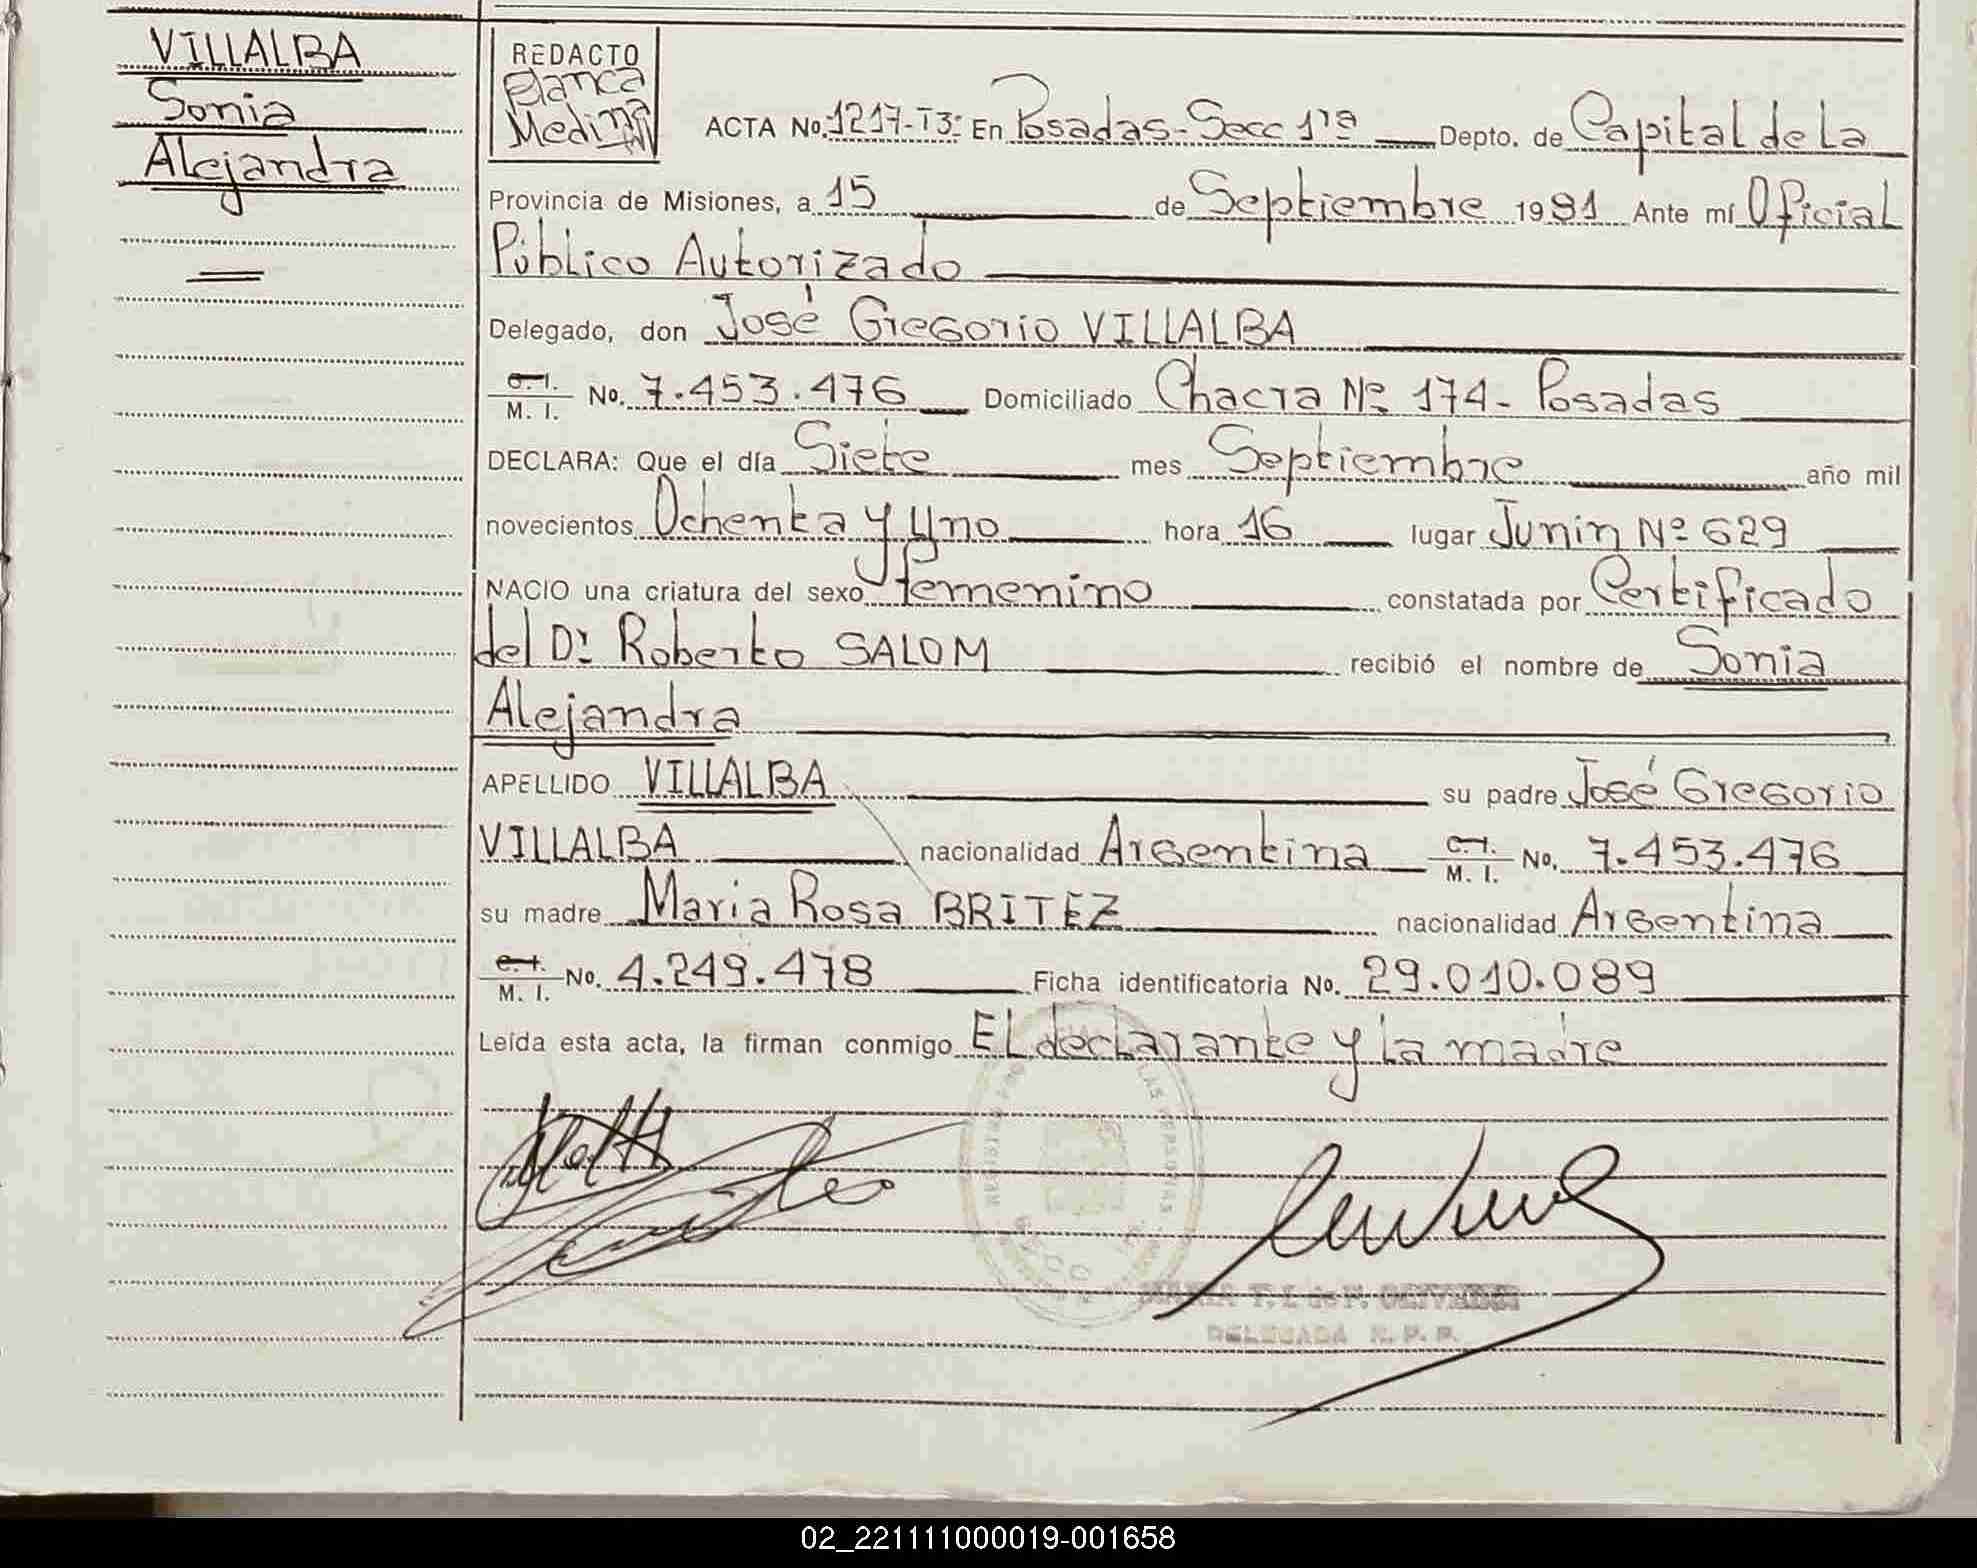 VILLALBA
Sonia
Alejandra
REDACTO
Blanca
Medina
ACTA No. 1217-T3: En Posadas-Secc 1ra Depto. de Capital de La
Provincia de Misiones, a 15 de Septiembre 1981 Ante mí Oficial
Público Autorizado
Delegado, don José Gregorio VILLALBA
C.I. M. I. No. 7.453.476 Domiciliado Chacra Nº 174- Posadas
DECLARA: Que el día Siete mes Septiembre año mil
novecientos Ochenta y Uno hora 16 lugar Junin Nº 629
NACIO una criatura del sexo femenino constatada por Certificado
del Dr Roberto SALOM recibió el nombre de Sonia
Alejandra
APELLIDO VILLALBA su padre José Gregorio
VILLALBA nacionalidad Argentina C.I. M. I. No. 7.453.476
su madre Maria Rosa BRITEZ nacionalidad Argentina
C.I. M. I. No. 4.249.478 Ficha identificatoria No. 29.010.089
Leída esta acta, la firman conmigo El declarante y la madre
DELEGADA R. P. P.
02_221111000019-001658